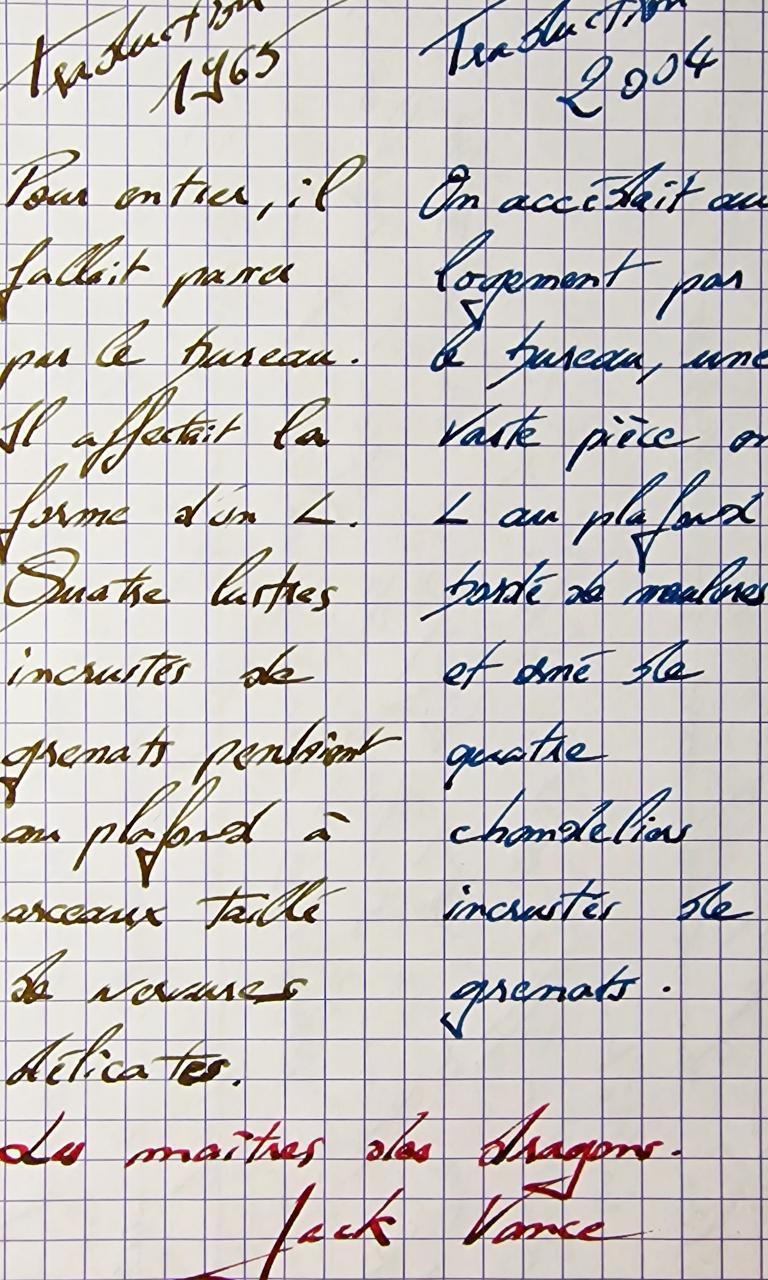 Traduction
1965
Pour entrer, il
fallait passer
par le bureau.
Il affectait la
forme d'un L.
Quatre lustres
incrustés de
grenats pendaient
au plafond à
arceaux taillé
de nervures
délicates.
Traduction
2004
On accédait au
logement par
le bureau, une
vaste pièce en
L au plafond
bordé de moulures
et orné de
quatre
chandeliers
incrustés de
grenats.
Les maîtres des dragons.
Jack Vance